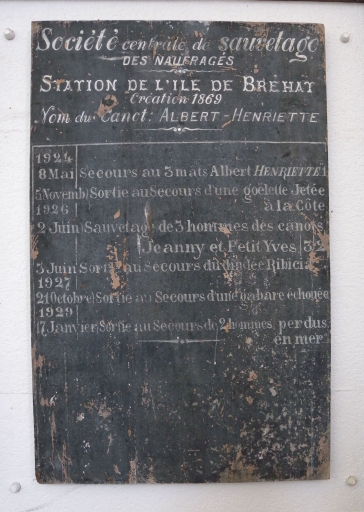 Société centrale de sauvetage
DES NAUFRAGÉS
STATION DE L'ILE DE BRÉHAT
Création 1869
Nom du Canot: ALBERT-HENRIETTE
1924
8 Mai Secours au 3 mats Albert HENRIETTE
5 Novemb Sortie au Secours d'une goëlette Jetée
1926 à la Côte
2 Juin Sauvetage de 3 hommes des canots
Jeanny et Petit Yves
3 Juin Sortie au Secours du dundée Ribicia
1927
21 Octobre Sortie au Secours d'une gabare échouée
1929
17 Janvier Sortie au Secours de 2 hommes perdus
en mer